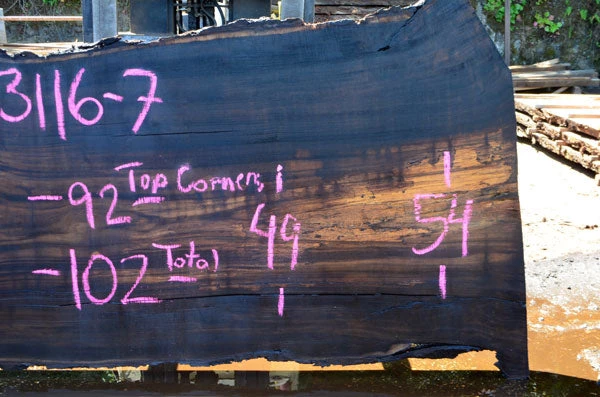 3116-7
-92 Top Corners
-102 Total
49
54